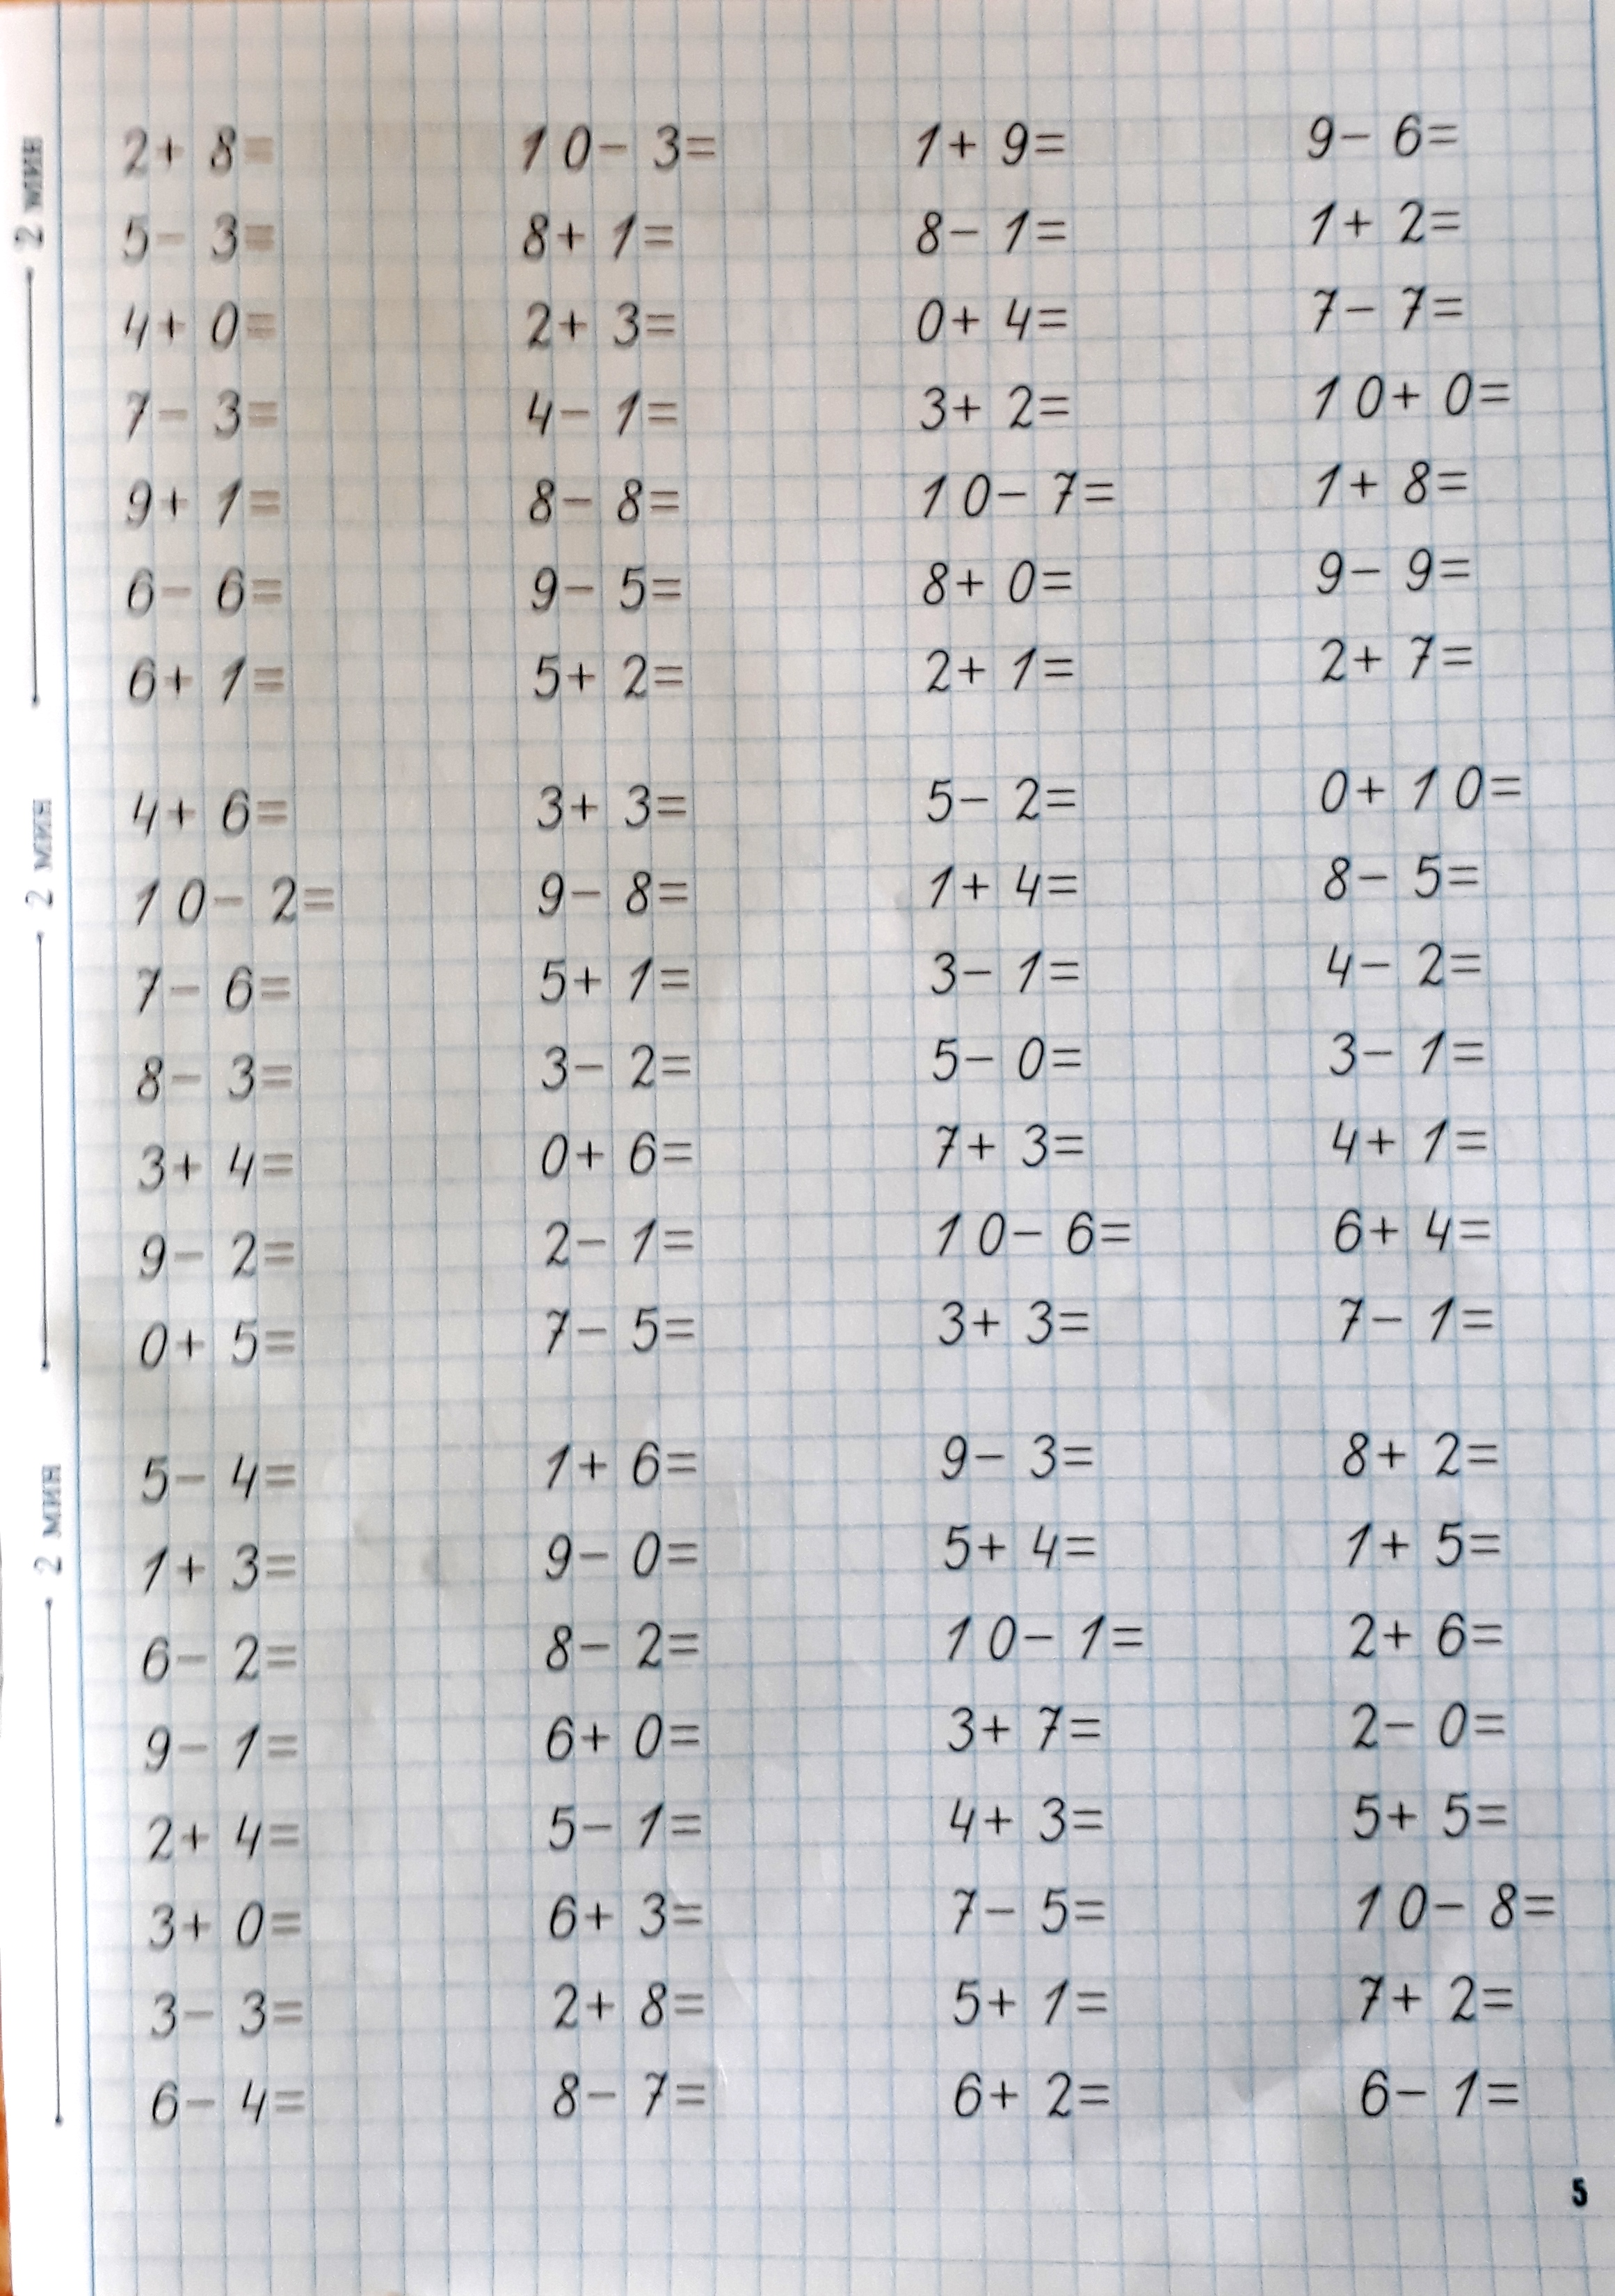 2 мин
2+ 8= 10- 3= 1+ 9= 9- 6=
5- 3= 8+ 1= 8- 1= 1+ 2=
4+ 0= 2+ 3= 0+ 4= 7- 7=
7- 3= 4- 1= 3+ 2= 10+ 0=
9+ 1= 8- 8= 10- 7= 1+ 8=
6- 6= 9- 5= 8+ 0= 9- 9=
6+ 1= 5+ 2= 2+ 1= 2+ 7=
2 мин
4+ 6= 3+ 3= 5- 2= 0+ 10=
10- 2= 9- 8= 1+ 4= 8- 5=
7- 6= 5+ 1= 3- 1= 4- 2=
8- 3= 3- 2= 5- 0= 3- 1=
3+ 4= 0+ 6= 7+ 3= 4+ 1=
9- 2= 2- 1= 10- 6= 6+ 4=
0+ 5= 7- 5= 3+ 3= 7- 1=
2 мин
5- 4= 1+ 6= 9- 3= 8+ 2=
1+ 3= 9- 0= 5+ 4= 1+ 5=
6- 2= 8- 2= 10- 1= 2+ 6=
9- 1= 6+ 0= 3+ 7= 2- 0=
2+ 4= 5- 1= 4+ 3= 5+ 5=
3+ 0= 6+ 3= 7- 5= 10- 8=
3- 3= 2+ 8= 5+ 1= 7+ 2=
6- 4= 8- 7= 6+ 2= 6- 1=
5